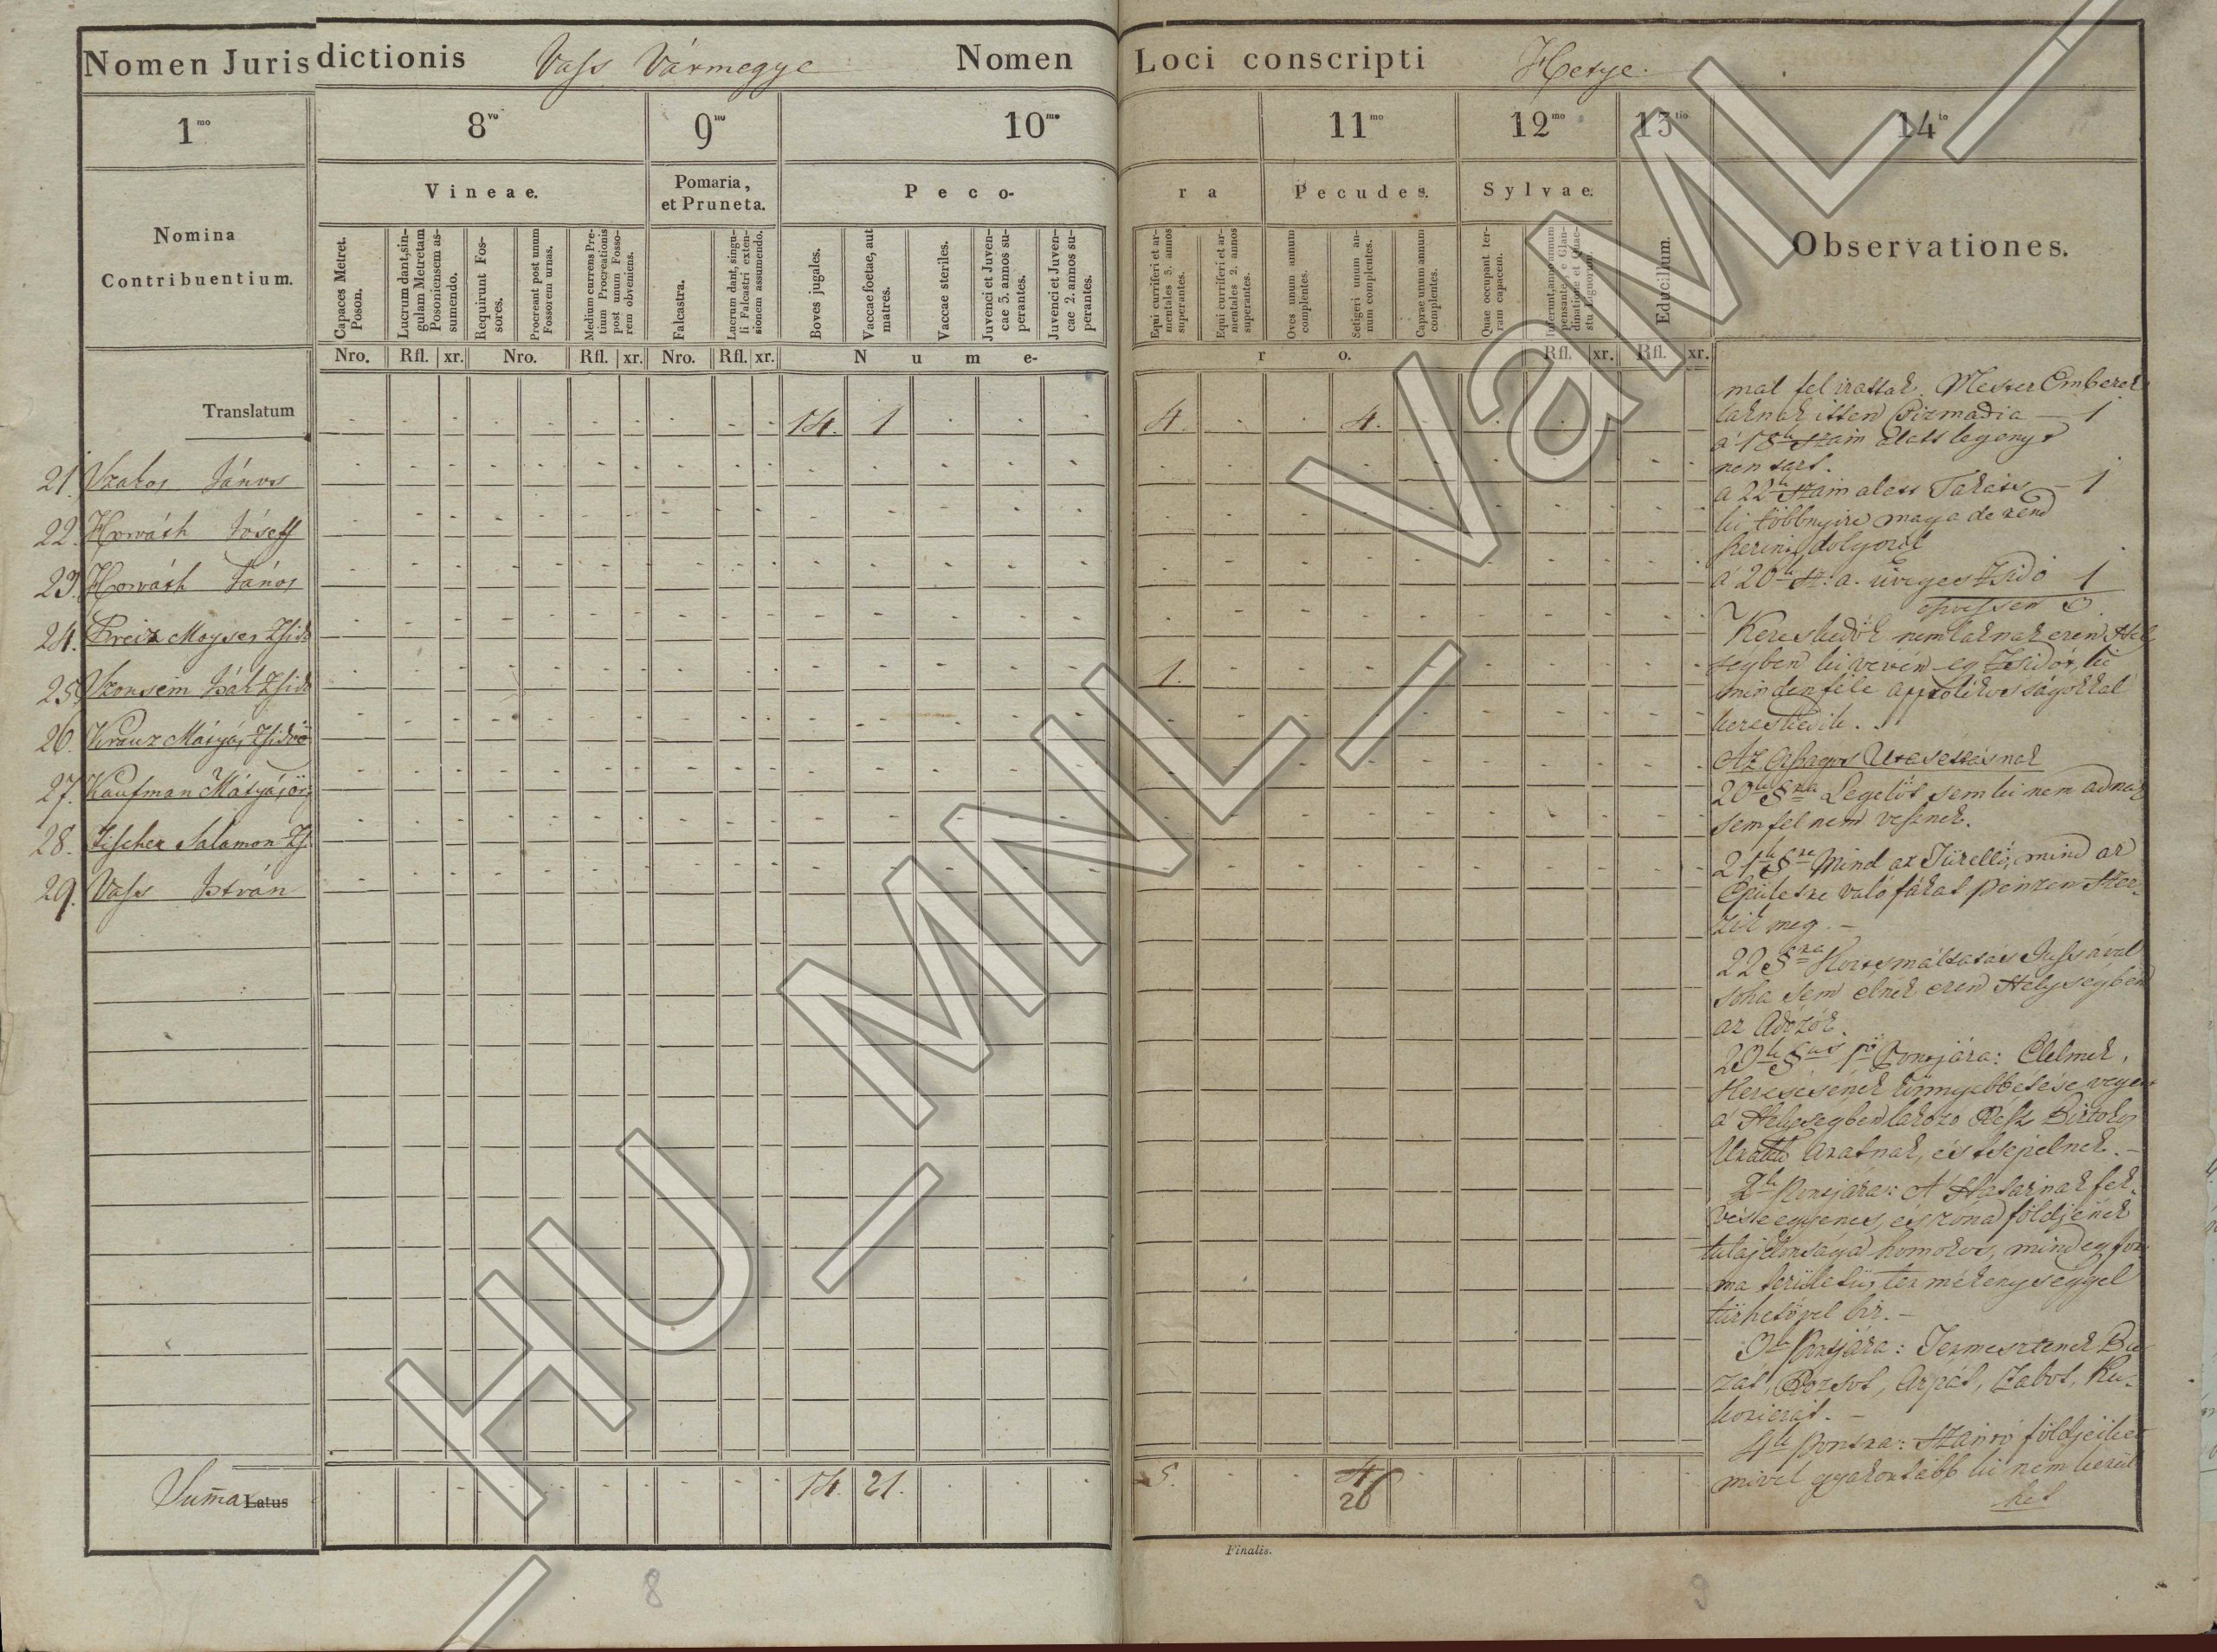 Nomen Jurisdictionis Vass Vármegye Nomen Loci conscripti Hetye.
1mo 8vo 9no 10mo 11mo 12mo 13tio 14to
Nomina
Contribuentium.
Vineae.
Pomaria,
et Pruneta.
Peco-
ra
Pecudes.
Sylvae.
Educillum.
Observationes.
Capaces Metret.
Poson.
Lucrum dant, sin-
gulam Metretam
Posoniensem as-
sumendo.
Requirunt Fos-
sores.
Procreant post unum
Fossorem urnas.
Medium currens Pre-
tium Procreationis
post unum Fosso-
rem obveniens.
Falcastra.
Lucrum dant, singu-
li Falcastri exten-
sionem assumendo.
Boves jugales.
Vaccae foetae, aut
matres.
Vaccae steriles.
Juvenci et Juven-
cae 3. annos su-
perantes.
Juvenci et Juven-
cae 2. annos su-
perantes.
Equi curriferi et ar-
mentales 3. annos
superantes.
Equi curriferi et ar-
mentales 2. annos
superantes.
Oves unum annum
complentes.
Setigeri unum an-
num complentes.
Caprae unum annum
complentes.
Quae occupant ter-
ram capacem.
Nro. Rfl. xr. Nro. Rfl. xr. Nro. Rfl. xr. Nume-
ro. Rfl. xr. Rfl. xr.
Translatum 14. 1 4. 4.
21. Szakos János
22. Horváth Jóseff
23. Horváth János
24. Preisz Moyses Zsidó
25. Pál Zsidó 1.
26. Krausz Mátyás Zsidó
27. Kaufman Mátyás özv
28. Fischer Salamon Zs.
29. Vass István
Suma Latus 14. 21. 5. 4 26
mat fel irattak. Mester Emberek
laknak itten Csizmadia — 1
a 18ik szám alatt legényt
nem tart.
a 22ik szám alatt Takács — 1
ki többnyire maga de rend
szerint dolgozik
a 20ik sz: a. üveges Zsidó 1
öszvessen 3.
Kereskedők nem laknak ezen Hely
ségben ki vévén egy Zsidót, ki
minden féle aprólékosságokkal
kereskedik.
Az Országos Utasításnak
20ik §ra Legelőt sem ki nem adnak
sem fel nem vesznek.
21ik §ra Mind az Tüzellő, mind az
Épületre való fákat pénzen szer-
zik meg. —
22 §ra Korcsmáltatás Jussával
soha sem élnek ezen Helységben
az Adózók.
23ik §us 1ső Pontjára: Élelmek
Keresésének könnyebbétése végett
a Helységben lakozó Rész Birtokos
Uraknál Aratnak, és tsépelnek. —
2ik Pontjára: A Határnak fek-
vése egyenes, és róna földjének
tulajdonsága homokos, mind egy for-
ma területű, termékenységgel
tűrhetővel bír. —
3ik Pontjára: Termesztenek Bu-
zát, Rozsot, Árpát, Zabot, Ku-
koriczát. —
4ik Pontra: Szántó földjeiket
mivel gyakortább ki nem kerül
het
Finalis.
8
9
HU_MNL_VaML_